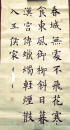 春城無處不飛花寒
食東風御柳斜日暮
漢宮傳蠟燭輕煙散
入五侯家